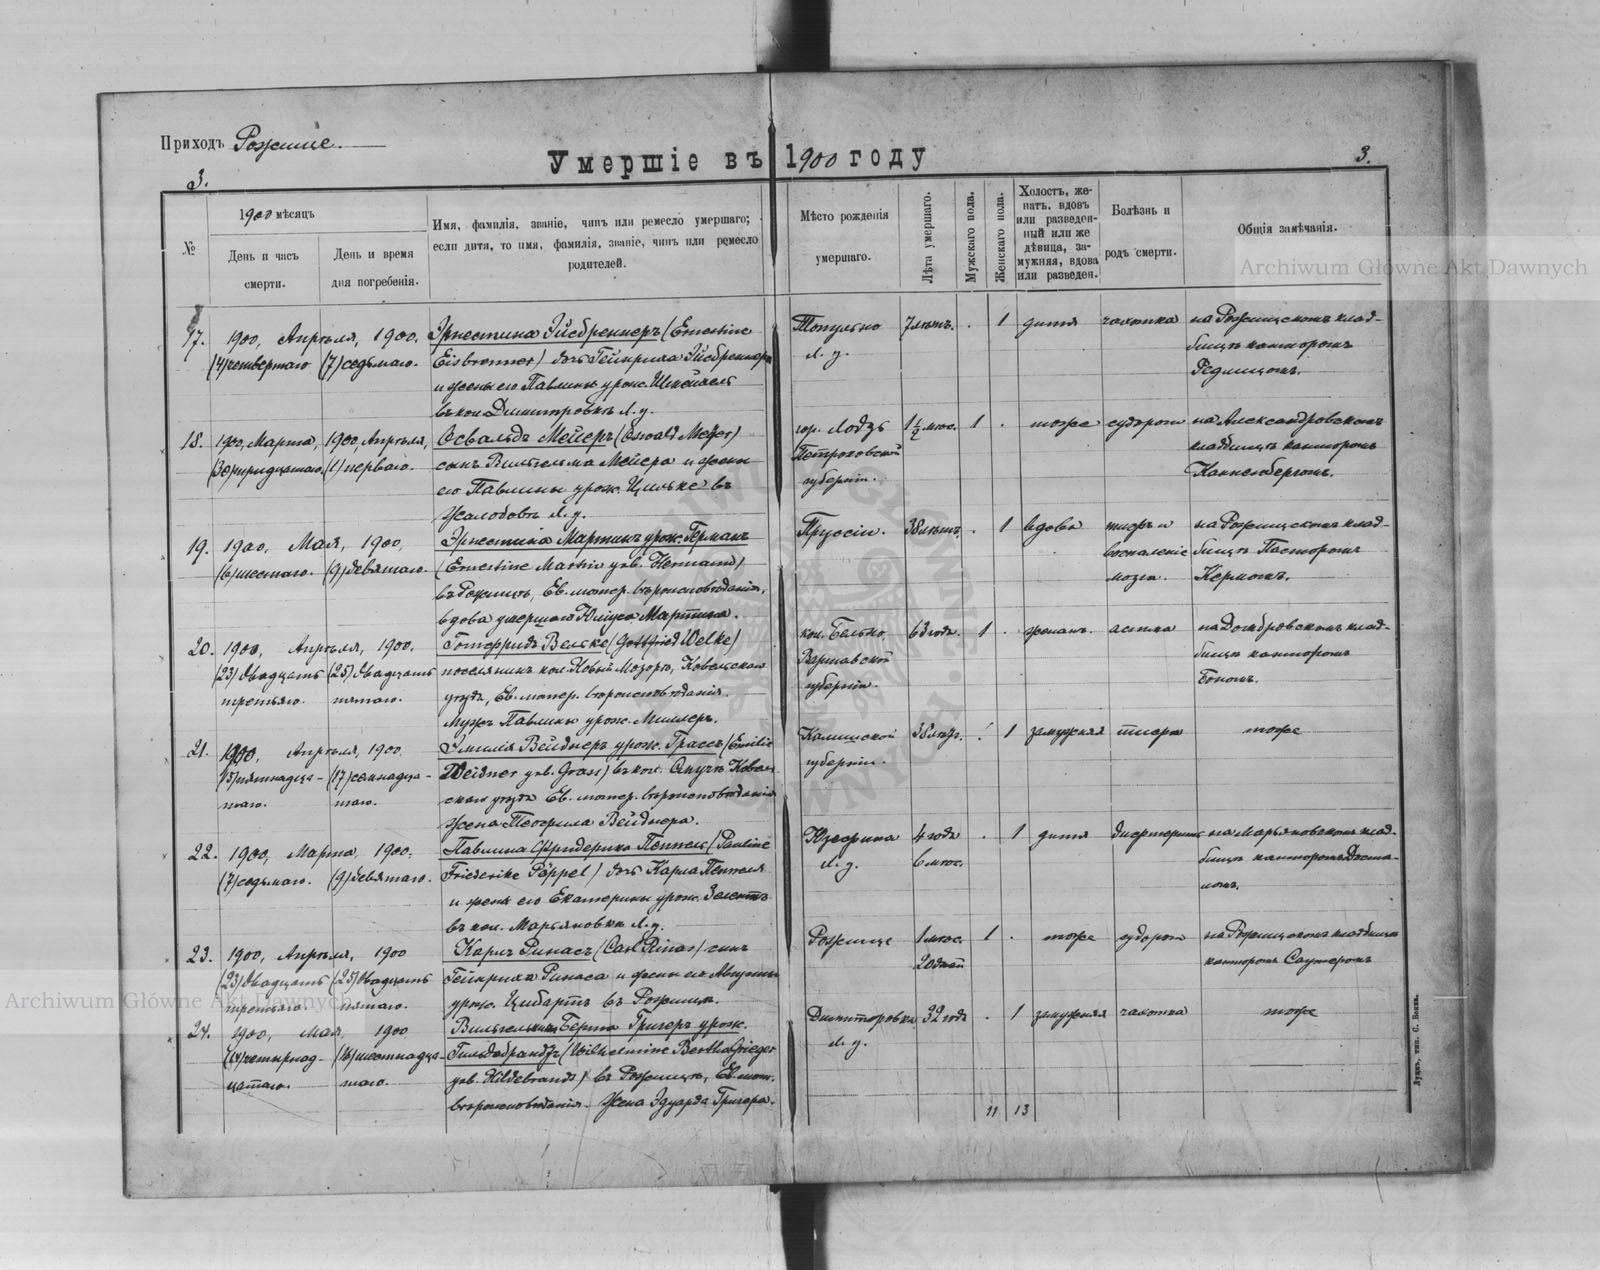 Приходъ Рожище.
Умершіе въ 1900 году
3.
3.
№
1900 мѣсяцъ
День и часъ
смерти.
День и время
дня погребенія.
Имя, фамилія, званіе, чинъ или ремесло умершаго;
если дитя, то имя, фамилія, званіе, чинъ или ремесло
родителей.
Мѣсто рожденія
умершаго.
Лѣта умершаго.
Мужскаго пола.
Женскаго пола.
Холостъ, же-
натъ, вдовъ
или разведен-
ный или же
дѣвица, за-
мужняя, вдова
или разведен.
Болѣзнь и
родъ смерти.
Общія замѣчанія.
Archiwum Główne Akt Dawnych
17. 1900, Апрѣля, 1900. Эрнестина Эйсбреннеръ (Ernestine
(4) четвертаго (7) седьмаго. Eisbrenner) дочь Гейнриха Эйсбреннера
и жены его Павлины урож.
въ кол. Дмитровкѣ Л. у.
Топульно 7 лѣтъ. . 1 дитя чахотка на Рожищскомъ клад-
Л. у. бищѣ канторомъ
Редлицомъ.
18. 1900, Марта, 1900, Апрѣля, Освальдъ Мейеръ (Oswald Meyer)
(30) тридцатаго. (1) перваго. сынъ Вильгельма Мейера и жены
его Павлины урож. Цильке въ
Жалобовѣ Л. у.
гор. Лодзь 1½ мѣс. 1 . тоже судороги на Александровскомъ
Петроковской кладбищѣ канторомъ
губерніи. Канненбергомъ.
19. 1900, Мая, 1900, Эрнестина Мартинъ урож. Германъ
(6) шестаго. (9) девятаго. (Ernestine Martin geb. Hermann)
въ Рожищѣ, Ев. лютер. вѣроисповѣданія,
вдова умершаго Юліуса Мартина.
Пруссіи. 38 лѣтъ. . 1 вдова тифъ и на Рожищскомъ клад-
воспаленіе бищѣ Пасторомъ
мозга. Кермомъ.
20. 1900, Апрѣля, 1900. Готфридъ Вельке (Gottfried Welke)
(23) двадцать (25) двадцать поселянинъ кол. Новый Мозоръ, Ковельскаго
третьяго. пятаго. уѣзда, Ев. лютер. вѣроисповѣданія.
Мужъ Павлины урож. Миллеръ.
кол. Бельно 63 года. 1 . женатъ. астма на Домбровскомъ клад-
Варшавской бищѣ канторомъ
губерніи. Бономъ.
21. 1900, Апрѣля, 1900 Эмилія Вейднеръ урож. Грассъ (Emilie
(15) пятнадца- (17) семнадца- Weidner geb. Grass) въ кол. Ковель-
таго. таго. скаго уѣзда Ев. лютер. вѣроисповѣданія
Жена Теофила Вейднера.
Калишской 38 лѣтъ. . 1 замужняя тоже
губерніи.
22. 1900, Марта, 1900, Павлина Фридерика Пеппель (Pauline
(7) седьмаго. (9) девятаго. Friederike Pöppel) дочь Карла Пеппеля
и жены его Екатерины урож.
въ кол. Марьяновкѣ Л. у.
Юзефина 4 года . 1 дитя дифтеритъ на Марьяновскомъ клад-
Л. у. 6 мѣс. бищѣ канторомъ
23. 1900, Апрѣля, 1900 Карлъ Ринасъ (Carl Rinas) сынъ
(23) двадцать (25) двадцать Гейнриха Ринаса и жены его Августины
третьяго. пятаго. урож. Цибартъ въ Рожищѣ.
Рожище 1 мѣс. 1 . тоже судороги на Рожищскомъ кладбищѣ
20 дней канторомъ Саутеромъ
Archiwum Główne Akt Dawnych
24. 1900, Мая, 1900 Вильгельмина Берта Григеръ урож.
(14) четырнад- (16) шестнадца- Гильдебрандтъ (Wilhelmine Bertha Grieger
цатаго. таго. geb. Hildebrandt) въ Рожищѣ, Ев. лют.
вѣроисповѣданія. Жена Эдуарда Григера.
Дмитровка 32 года . 1 замужняя чахотка тоже
Л. у.
11 13
Луцкъ, тип. С. Бокъ.